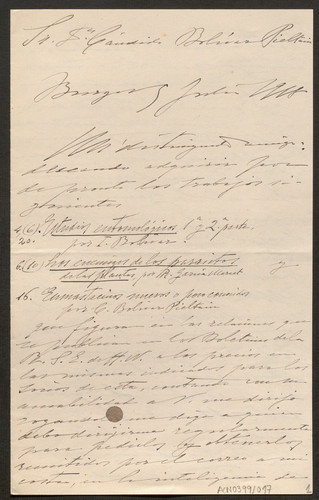 Sr. Dn. Cándido Bolívar Pieltain
Burgos 5 Julio
Mi distinguido amigo:
deseando adquirir por
de pronto los trabajos si-
guientes
4(6). Estudios entomológicos 1ª y 2ª parte,
20. por I. Bolívar.
6(10) Los enemigos de los parásitos
de las plantas, por R. García Mercet y
16. Eumastacinos nuevos o poco conocidos
por C. Bolívar Pieltain
que figuran en las relaciones que
se publican en los Boletines de la
R. S. E. de H. N. a los precios en
las mismas indicados para los
socios de esta, contando con su
amabilidad a V. me dirijo
rogando me diga a quien
debo dirigirme
para pedirlos y obtenerlos
remitidos por el correo a mi
costa, en la inteligencia de
ACN0399/047
1